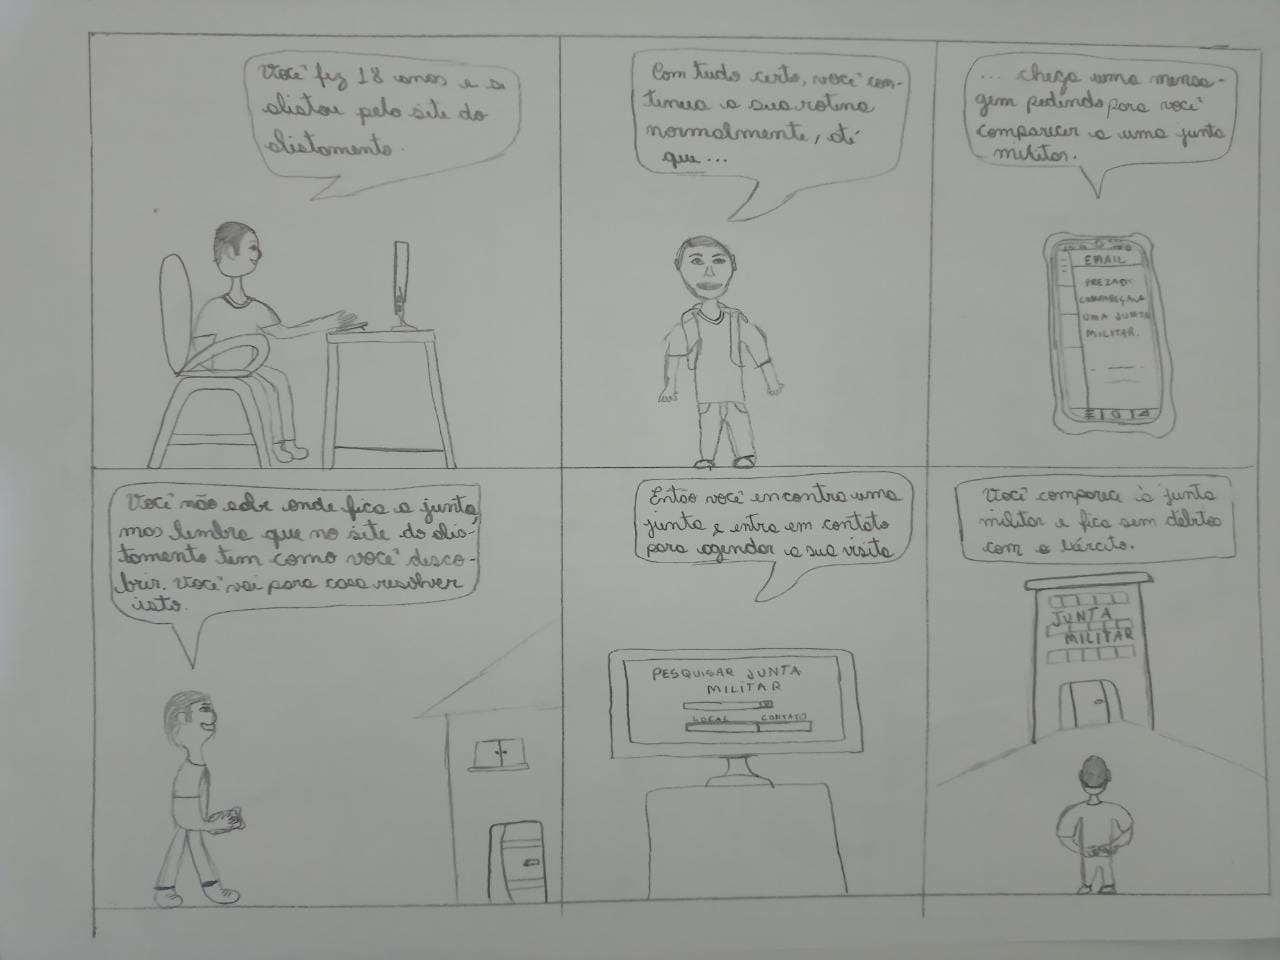 Você fez 18 anos e se
alistou pelo site do
alistamento.
Com tudo certo, você con-
tinua a sua rotina
normalmente, até
que...
... chega uma mensa-
gem pedindo para você
comparecer a uma junta
militar.
EMAIL
PREZADO:
COMPAREÇA A
UMA JUNTA
MILITAR.
Você não sabe onde fica a junta,
mas lembra que no site do alis-
tamento tem como você desco-
brir. Você vai para casa resolver
isto.
Então você encontra uma
junta e entra em contato
para agendar a sua visita
PESQUISAR JUNTA
MILITAR
LOCAL CONTATO
Você comparece à junta
militar e fica sem débitos
com o Exército.
JUNTA
MILITAR